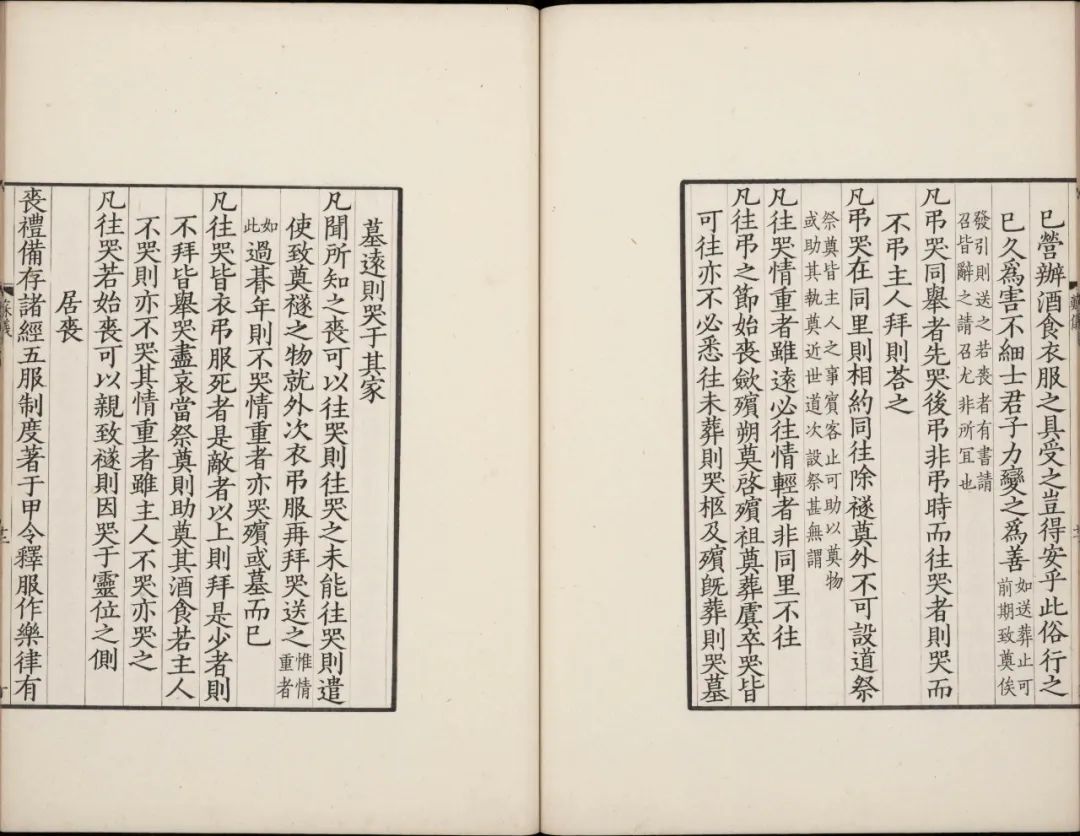 巳營辦酒食衣服之具受之豈得安乎此俗行之
巳久爲害不細士君子力變之爲善如送葬止可前期致奠俟
發引則送之若喪者有書請召皆辭之請召尤非所冝也
凡弔哭同舉者先哭後弔非弔時而往哭者則哭而
不弔主人拜則荅之
凡弔哭在同里則相約同往除襚奠外不可設道祭
祭奠皆主人之事賓客止可助以奠物或助其執奠近世道次設祭甚無謂
凡往哭情重者雖遠必往情輕者非同里不往
凡往弔之節始喪斂殯朔奠啓殯祖奠葬虞卒哭皆
可往亦不必悉往未葬則哭柩及殯旣葬則哭墓
墓遠則哭于其家
凡聞所知之喪可以往哭則往哭之未能往哭則遣
使致奠襚之物就外次衣弔服再拜哭送之惟情重者
如此過朞年則不哭情重者亦哭殯或墓而巳
凡往哭皆衣弔服死者是敵者以上則拜是少者則
不拜皆舉哭盡哀當祭奠則助奠其酒食若主人
不哭則亦不哭其情重者雖主人不哭亦哭之
凡往哭若始喪可以親致襚則因哭于靈位之側
居喪
喪禮備存諸經五服制度著于甲令釋服作樂律有